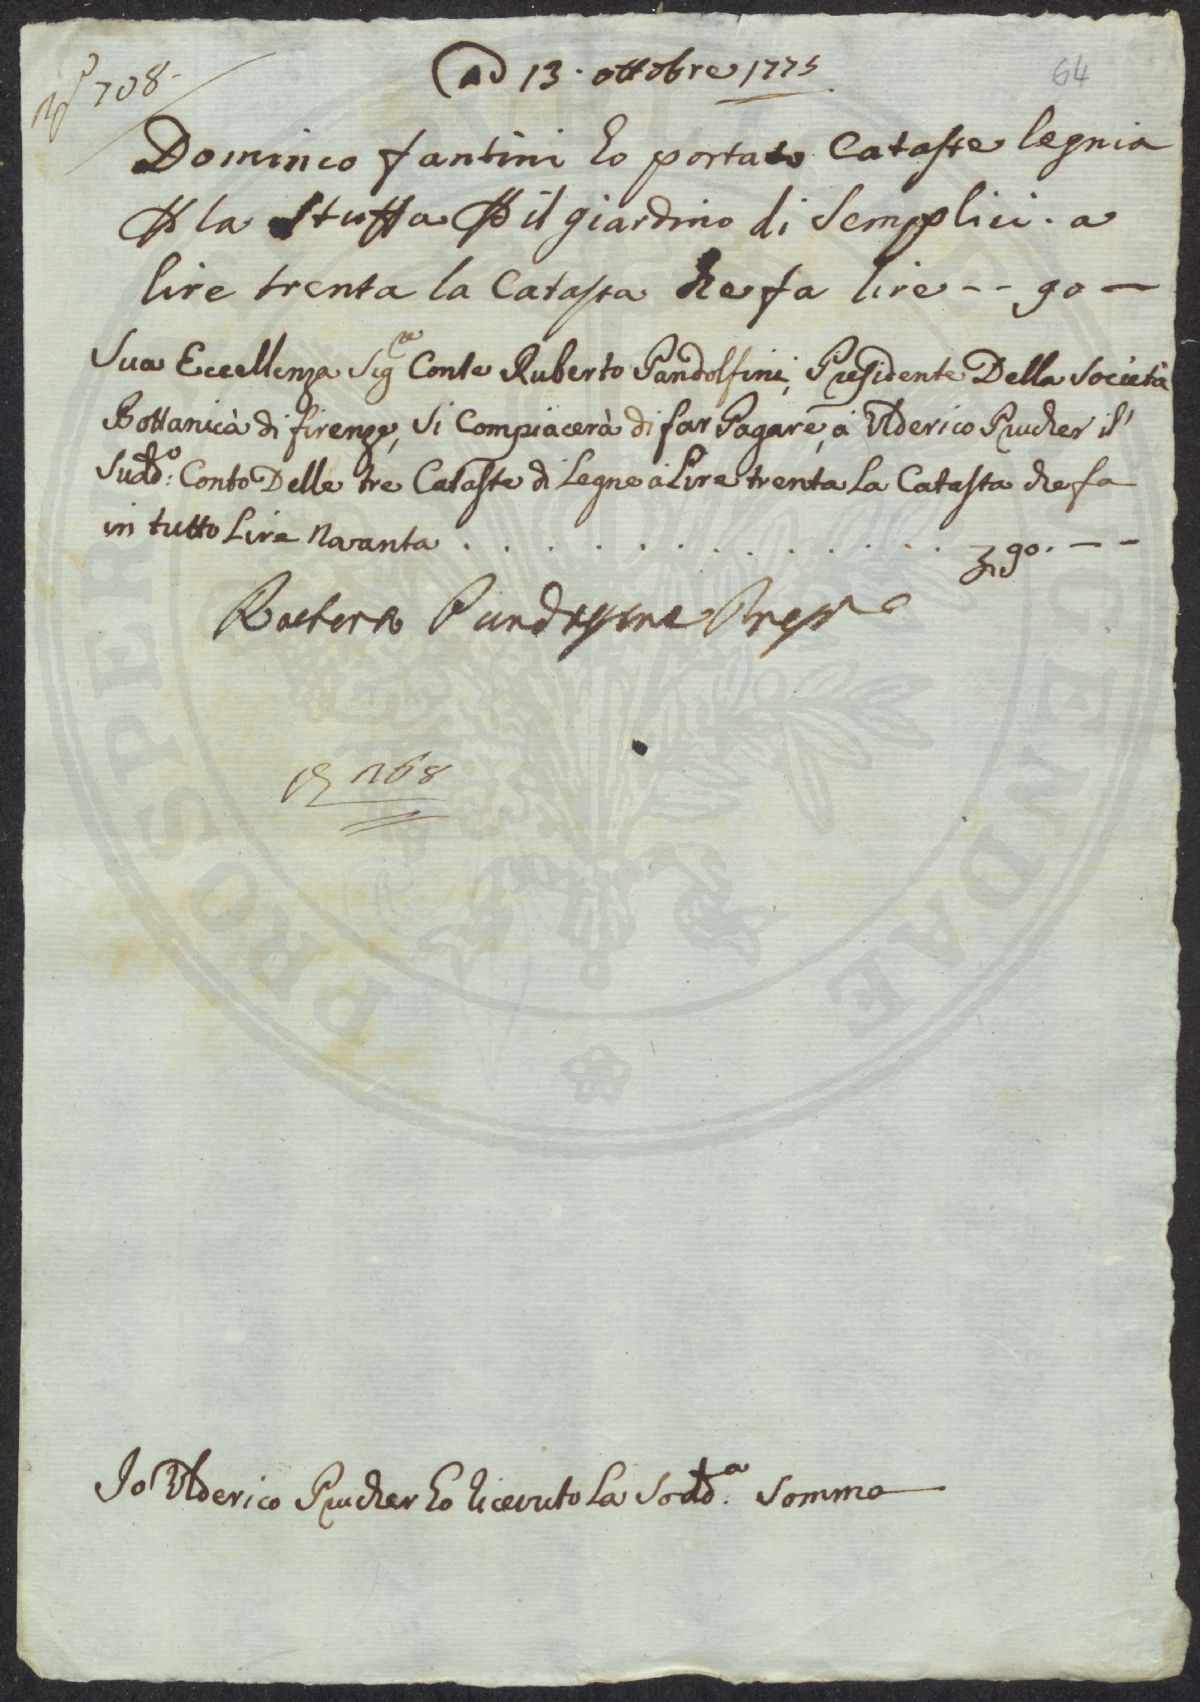 N° 708.
Ad 13. ottobre 1775
64
Dominico fantini ho portato Cataste legnia
P la Stuffa P il giardino di Semplici. a
lire trenta la Catasta che fa lire -- 90 —
Sua Eccellenza Sig.re Conte Ruberto Pandolfini, Presidente Della Società
Bottanicà di firenze, Si Compiacerà di far Pagare, à Ulderico Prucher il
Sudd.o: Conto Delle tre Cataste di Legne à Lire trenta La Catasta che fa
in tutto Lire Novanta . . . . . . . . . . . . £ 90. — —
Roberto Pandolfini Pres.e
168
Io Ulderico Prucher ho ricevuto La Sodd.a: Somma
PROSPER
ENDAE